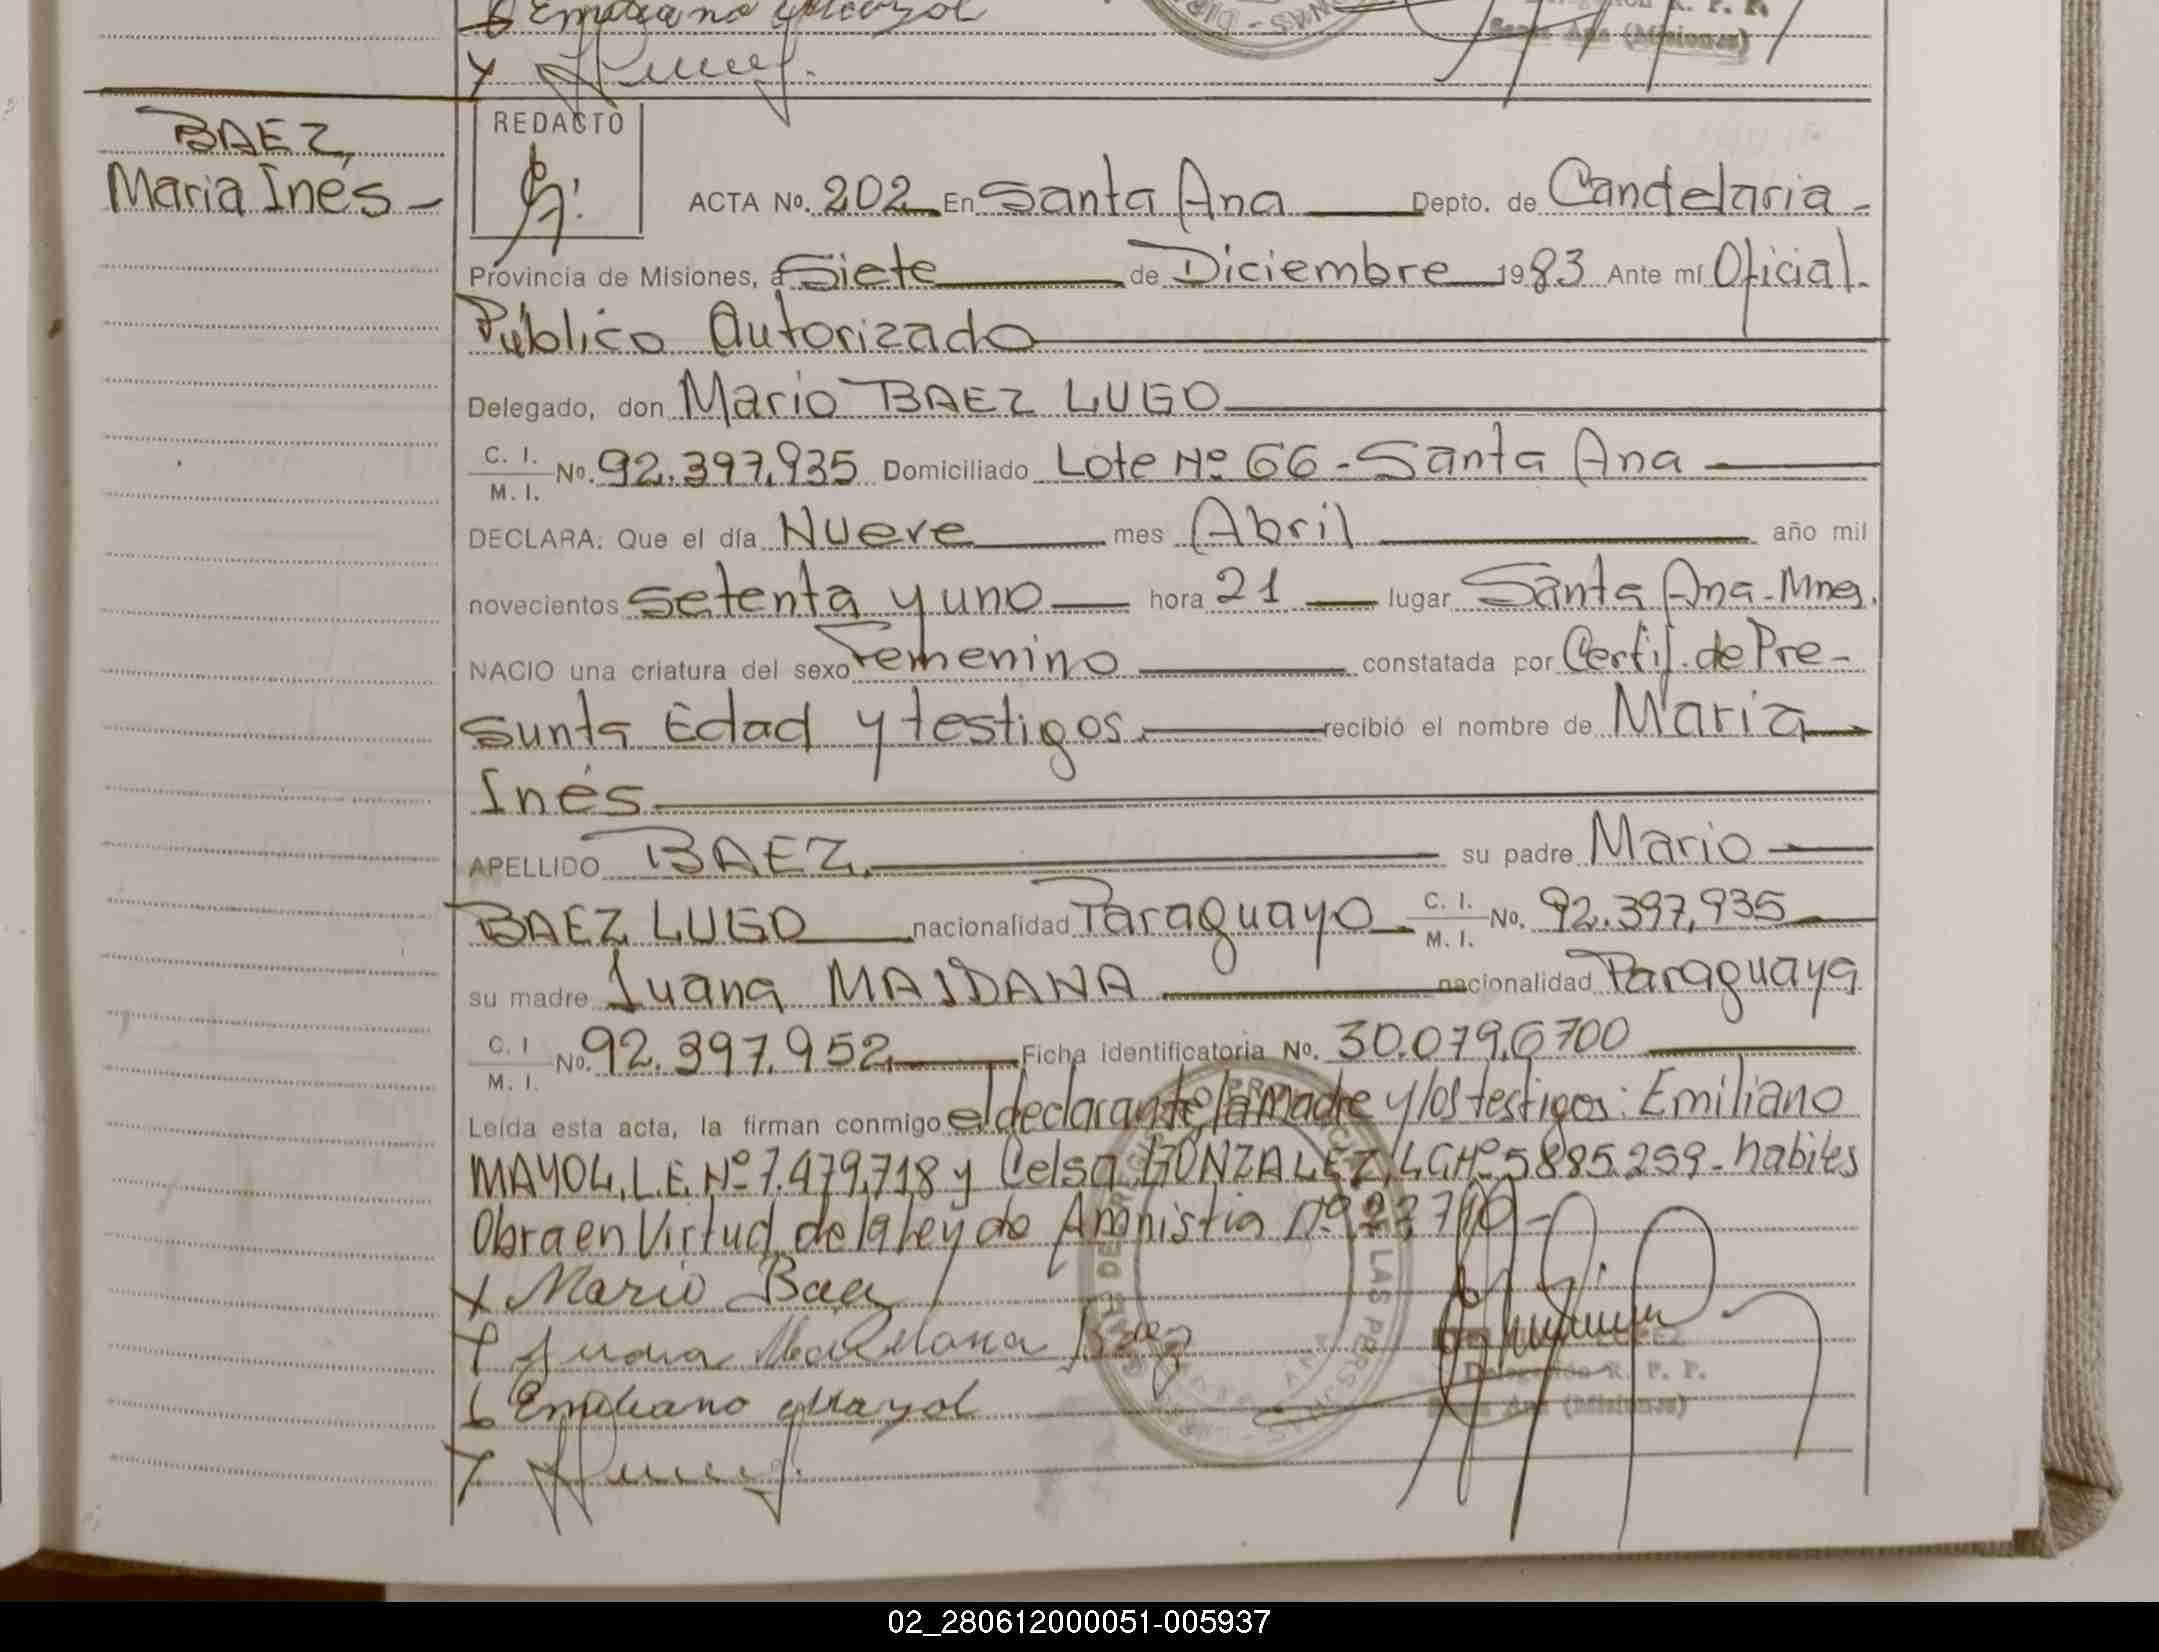 Emiliano Mayol
Santa Ana (Misiones)
BAEZ,
Maria Inés -
REDACTO
ACTA No. 202 En Santa Ana Depto. de Candelaria -
Provincia de Misiones, a Siete de Diciembre 1983 Ante mí Oficial.
Público Autorizado
Delegado, don Mario BAEZ LUGO
C. I.
M. I. No. 92.397.935 Domiciliado Lote Nº 66 - Santa Ana
DECLARA: Que el día Nueve mes Abril año mil
novecientos Setenta y uno hora 21 lugar Santa Ana - Mnes.
NACIO una criatura del sexo Femenino constatada por Certif. de Pre-
sunta Edad y testigos. recibió el nombre de Maria
Inés
APELLIDO BAEZ. su padre Mario
BAEZ LUGO nacionalidad Paraguayo C. I. M. I. No. 92.397.935
su madre Juana MAIDANA nacionalidad Paraguaya
C. I M. I. No. 92.397.952 Ficha identificatoria No. 30.079.6700
Leída esta acta, la firman conmigo el declarante, la madre y los testigos: Emiliano
MAYOL, L.E. Nº 7.479.718 y Celsa GONZALEZ, L.C Nº 5885.259 - habiles
Obra en Virtud de la Ley de Amnistia Nº 22710 -
x Mario Baez
Juana Maidana Baez
Emiliano Mayol
Delegación R. P. P.
Santa Ana (Misiones)
02_280612000051-005937